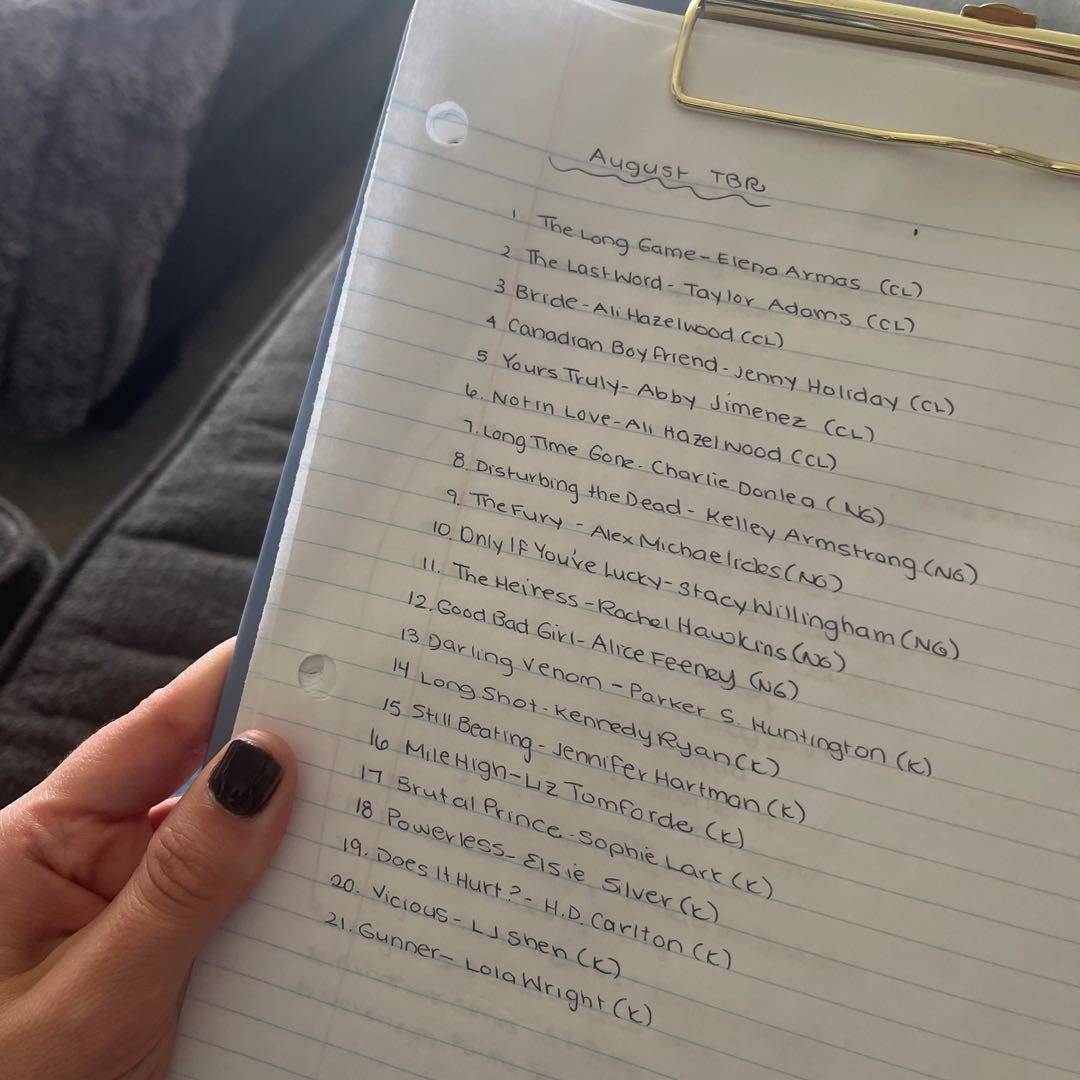 August TBR
1 The Long Game - Elena Armas (CL)
2 The Last Word - Taylor Adams (CL)
3 Bride - Ali Hazelwood (CL)
4 Canadian Boyfriend - Jenny Holiday (CL)
5 Yours Truly - Abby Jimenez (CL)
6. Not in Love - Ali Hazelwood (CL)
7. Long Time Gone - Charlie Donlea (NG)
8. Disturbing the Dead - Kelley Armstrong (NG)
9. The Fury - Alex Michaelides (NG)
10. Only If You're Lucky - Stacy Willingham (NG)
11. The Heiress - Rachel Hawkins (NG)
12. Good Bad Girl - Alice Feeney (NG)
13 Darling Venom - Parker S. Huntington (K)
14 Long Shot - Kennedy Ryan (K)
15 Still Beating - Jennifer Hartman (K)
16 Mile High - Liz Tomforde (K)
17 Brutal Prince - Sophie Lark (K)
18 Powerless - Elsie Silver (K)
19. Does It Hurt? - H.D. Carlton (K)
20. Vicious - LJ Shen (K)
21. Gunner - Lola Wright (K)